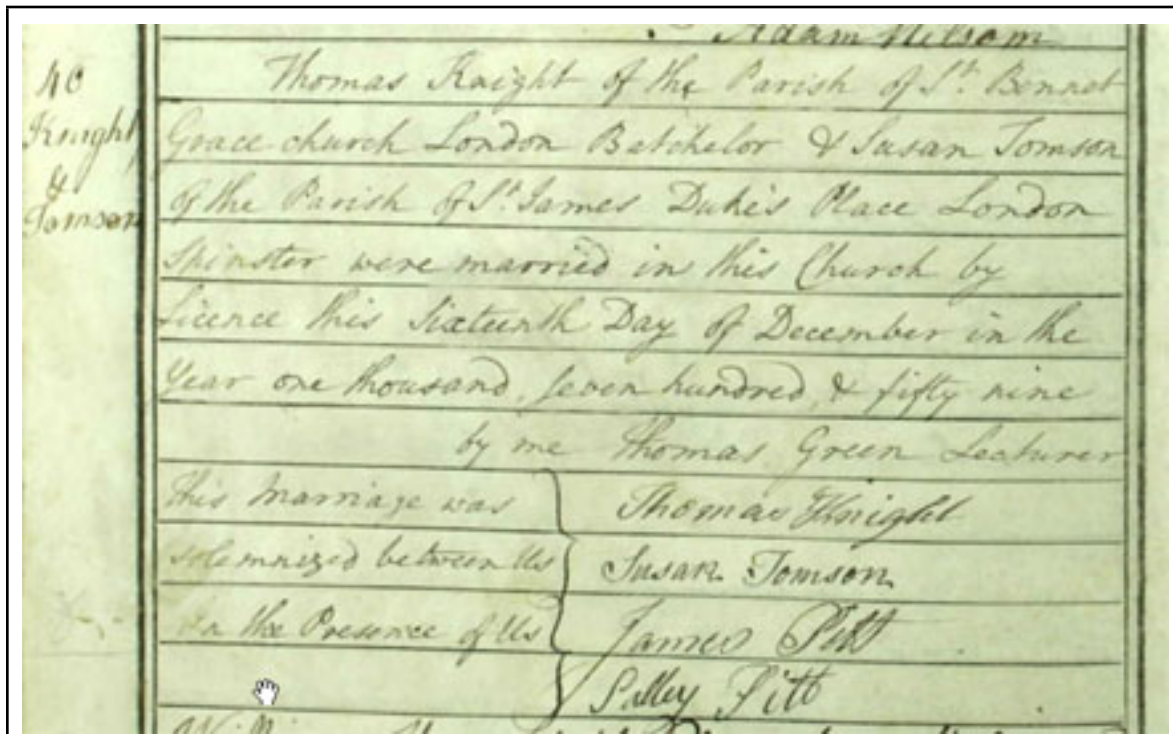 Adam Nelson
40
Knight
&
Tomson
Thomas Knight of the Parish of St. Bennet
Grace-church London Batchelor & Susan Tomson
of the Parish of St. James Duke's Place London
Spinster were married in this Church by
Licence this Sixteenth Day of December in the
Year one thousand, seven hundred, & fifty nine
by me Thomas Green Lecturer
This Marriage was
solemnized between Us
In the Presence of Us
Thomas Knight
Susan Tomson
James Pitt
Salley Pitt